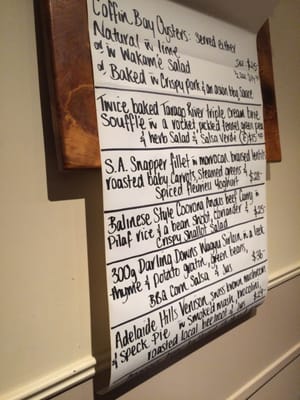 Coffin Bay Oysters: served either
Natural in lime
or in Wakame salad
or Baked in Crispy pork & an asian bbq Sauce
Twice baked Tarago River triple cream brie
Souffle in a rocket, pickled fennel, green pea
& herb Salad & Salsa Verde (E) $25
S.A. Snapper fillet in moroccan braised lentils
roasted baby Carrots, Steamed greens &
Spiced Fleurieu Yoghurt $28-
Balinese Style Coorong Angus beef Curry in
Pilaf rice & a bean shoot, coriander &
Crispy Shallot Salad $25-
300g Darling Downs Wagyu Sirloin, in a leek
thyme & potato gratin, green beans,
BBQ Corn Salsa & Jus $36-
Adelaide Hills Venison, swiss brown mushroom
& Speck Pie in Smoked mash, broccolini,
roasted local beetroot & Jus